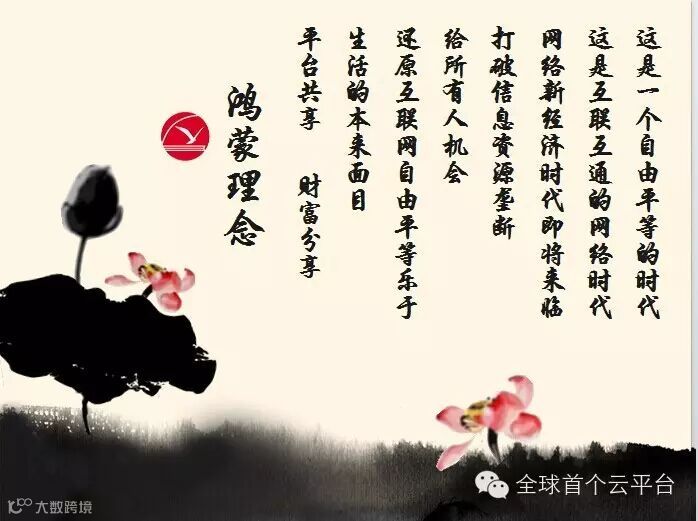 这是一个自由平等的时代
这是互联互通的网络时代
网络新经济时代即将来临
打破信息资源垄断
给所有人机会
还原互联网自由平等乐于
生活的本来面目
平台共享 财富分享
鸿蒙理念
全球首个云平台
大数跨境